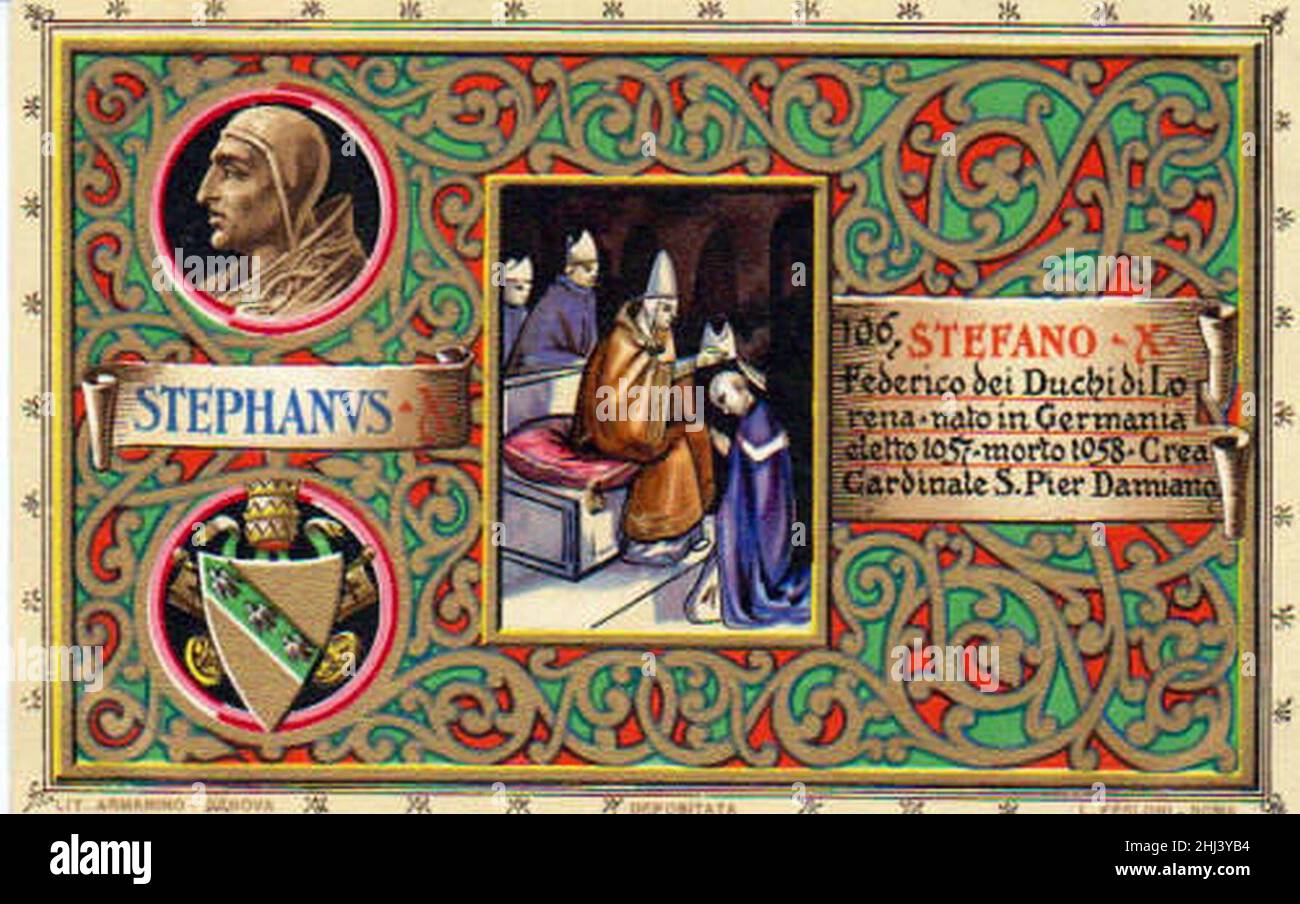 STEPHANVS · X
106, STEFANO · X ·
Federico dei Duchi di Lo
rena · nato in Germania
eletto 1057 · morto 1058 · Crea
Cardinale S. Pier Damiano
LIT. ARMANINO - GENOVA
DEPOSITATA
alamy
Image ID: 2HJ3YB4
www.alamy.com